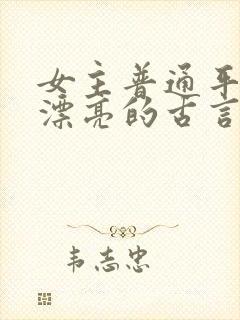 女主普通平
漂亮的古言
韦志忠